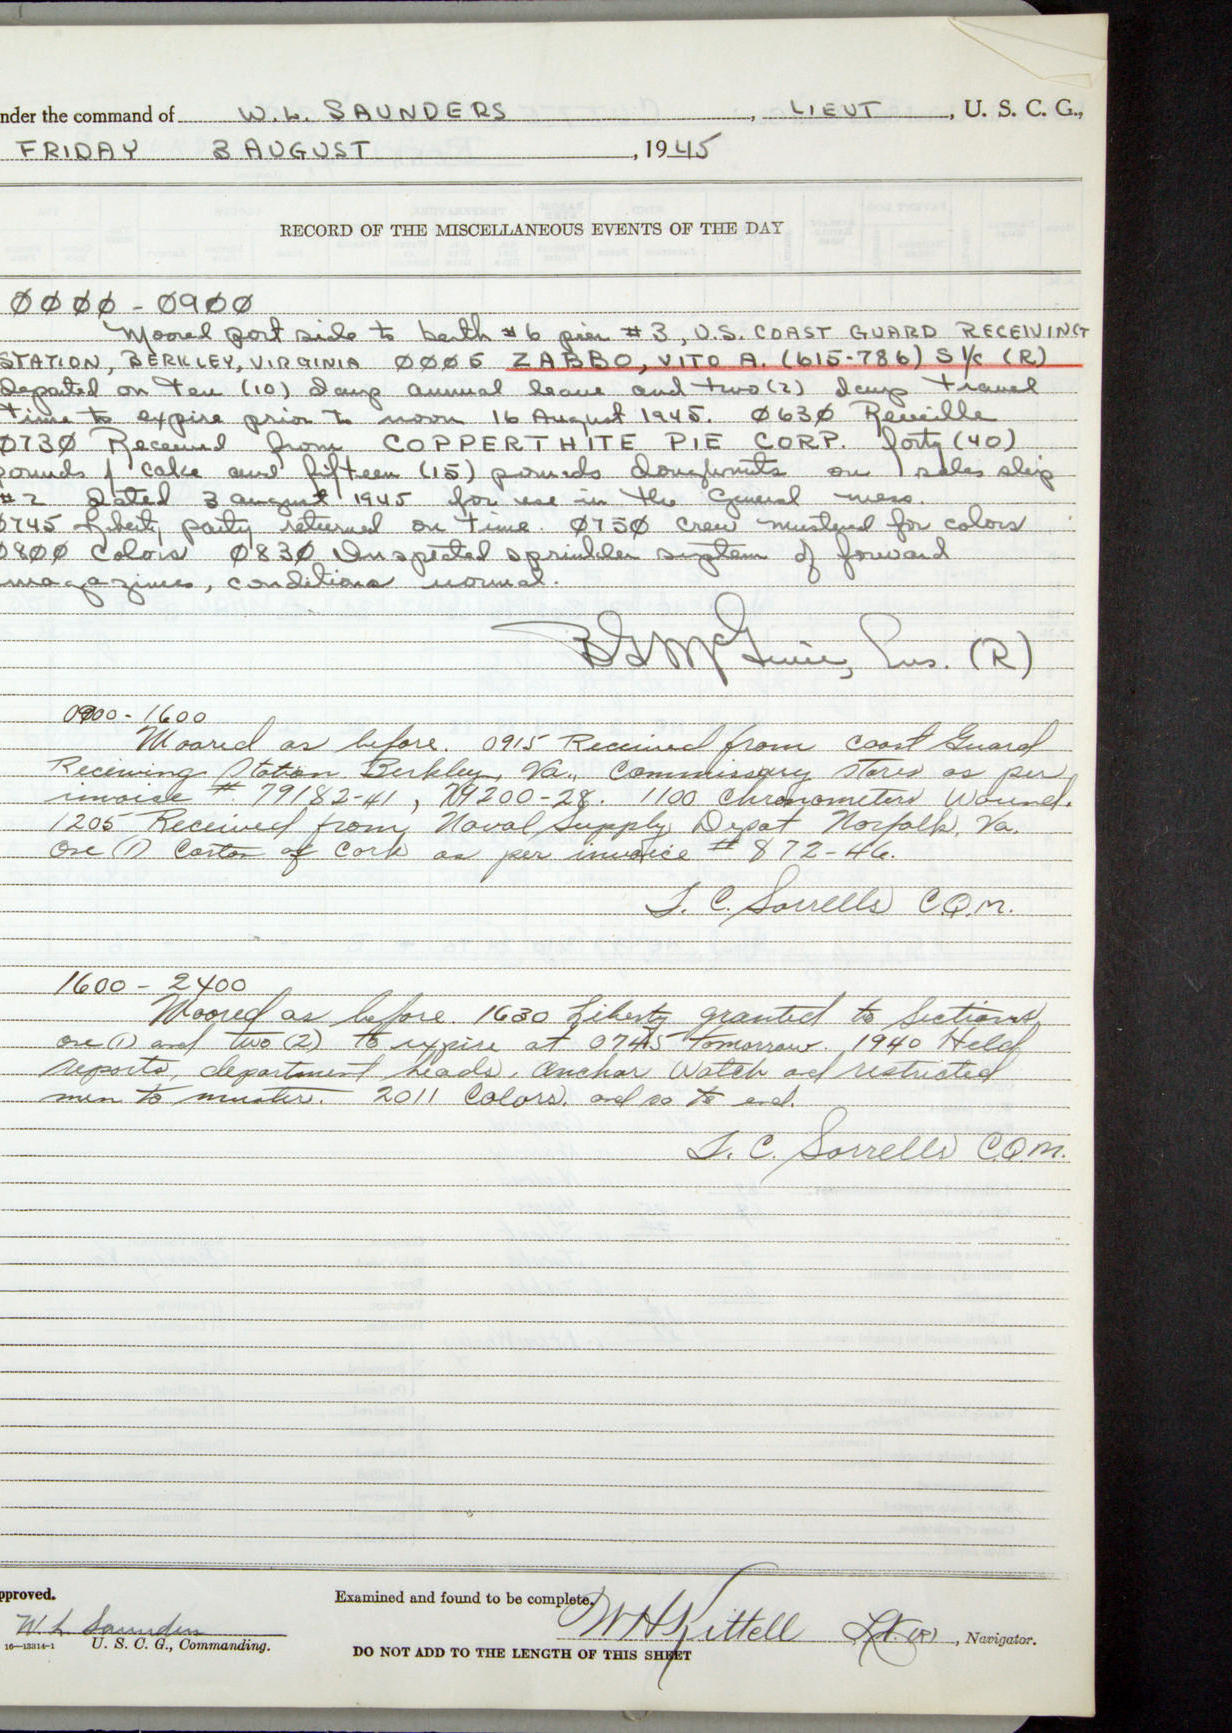 nder the command of W. L. SAUNDERS, LIEUT, U. S. C. G.,
FRIDAY 3 AUGUST, 1945
RECORD OF THE MISCELLANEOUS EVENTS OF THE DAY
0000 - 0900
Moored port side to berth #6 pier #3, U.S. COAST GUARD RECEIVING
STATION, BERKLEY, VIRGINIA 0005 ZABBO, VITO A. (615-786) S1/c (R)
departed on ten (10) days annual leave and two (2) days travel
time to expire prior to noon 16 August 1945. 0630 Reveille
0730 Received from COPPERTHITE PIE CORP. forty (40)
pounds of cake and fifteen (15) pounds doughnuts on sales slip
#2 dated 3 August 1945 for use in the General mess.
0745 Liberty party returned on time. 0750 Crew mustered for colors
0800 Colors 0830 Inspected sprinkler system of forward
magazines, conditions normal.
BG McGuire, Ens. (R)
0900 - 1600
Moored as before. 0915 Received from Coast Guard
Receiving Station Berkley, Va., Commissary stores as per
invoice # 79182-41, 79200-28. 1100 Chronometers Wound.
1205 Received from Naval Supply Depot Norfolk, Va.
One (1) Carton of Cork as per invoice # 872-46.
C. Sorrells C.Q.M.
1600 - 2400
Moored as before. 1630 Liberty granted to Sections
one (1) and two (2) to expire at 0745 tomorrow. 1940 Held
reports, department heads. Anchor Watch and restricted
men to muster. - 2011 Colors. and so to end.
C. Sorrells C.Q.M.
pproved.
W L Saunders
16—13814-1 U. S. C. G., Commanding.
Examined and found to be complete.
W H Kittell Lt. (R), Navigator.
DO NOT ADD TO THE LENGTH OF THIS SHEET